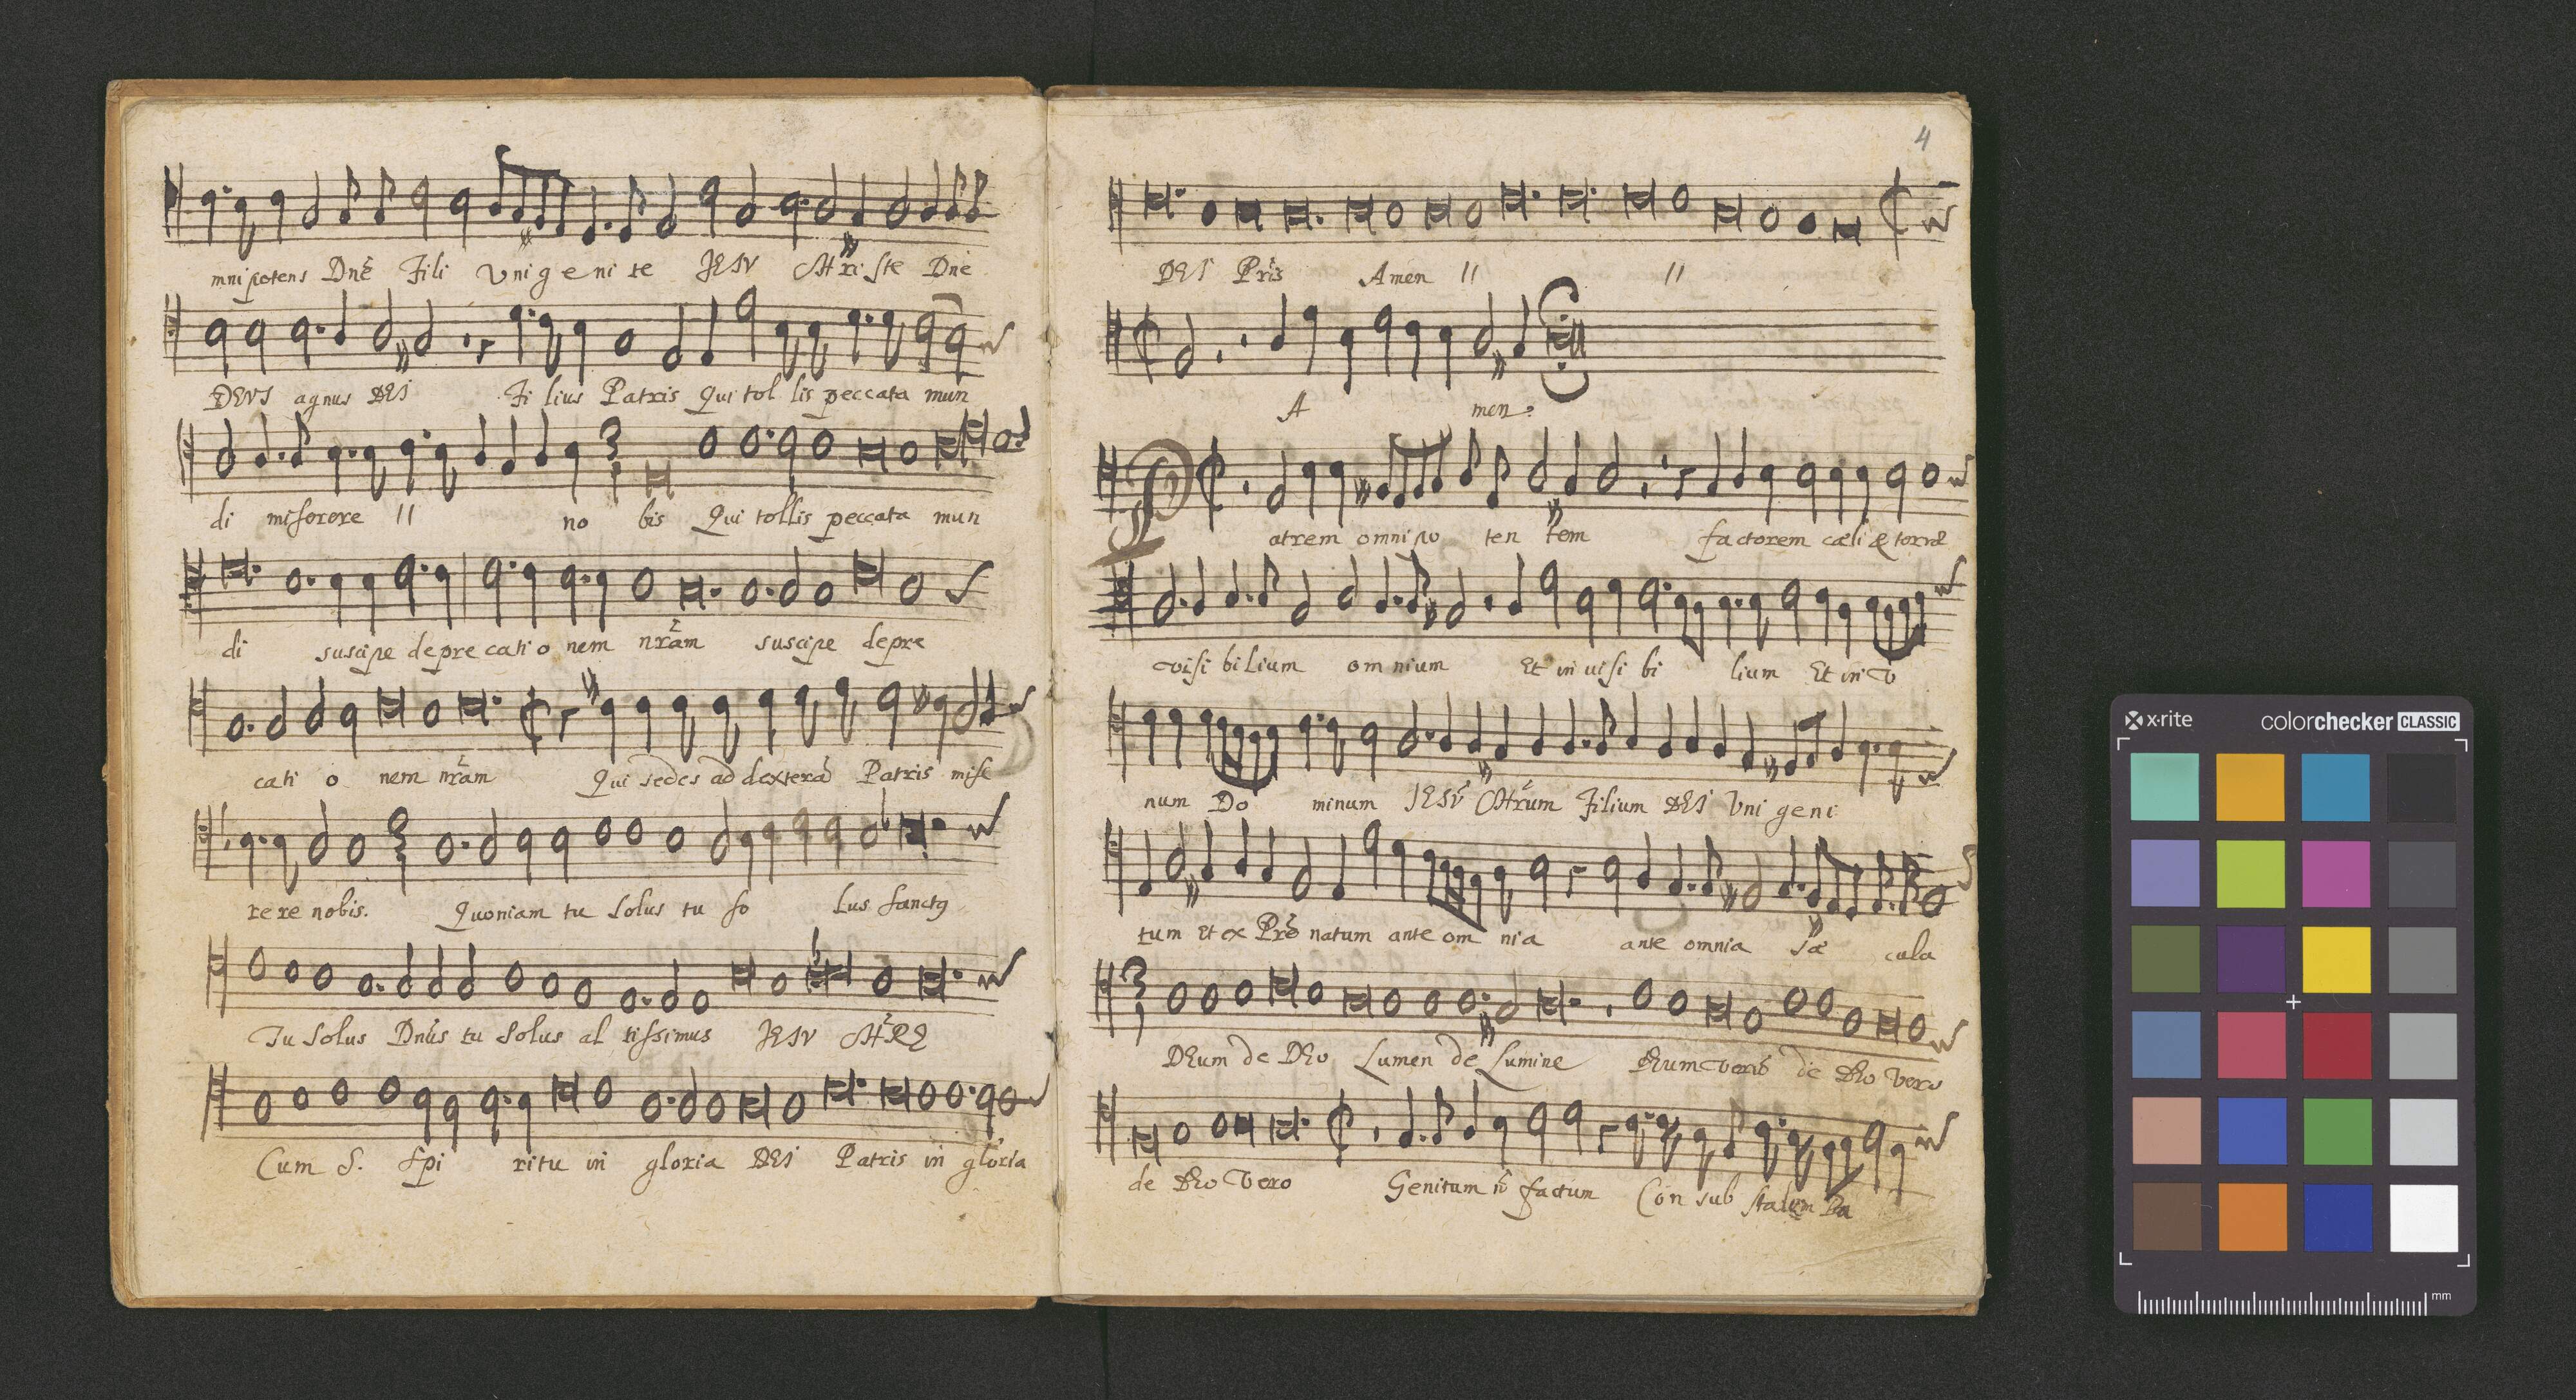 mnipotens Dnē Fili Vnigenite JESV CHriste Dne
DEVS agnus DEI Filius Patris Qui tollis peccata mun
di miserere || no bis Qui tollis peccata mun
di suscipe deprecationem nram suscipe depre
cati o nem nram Qui sedes ad dexterā Patris mise
rere nobis. Quoniam tu solus tu so lus sanctꝯ
Tu solus Dnus tu solus al tissimus JESV CHRE
Cum S. Spi ritu in gloria DEI Patris in gloria
4
DEI Pris Amen || ||
A men.
Patrem omnipo ten tem factorem cæli & terræ
visi bilium omnium Et in uisi bi lium Et in V
num Do minum JESV CHrum Filium DEI Vni geni
tum Et ex Pre natum ante om nia ante omnia sæ cula
DEum de DEo Lumen de Lumine DEum verū de DEo vero
de DEo Vero Genitum nō factum Con sub
x·rite
colorchecker CLASSIC
mm